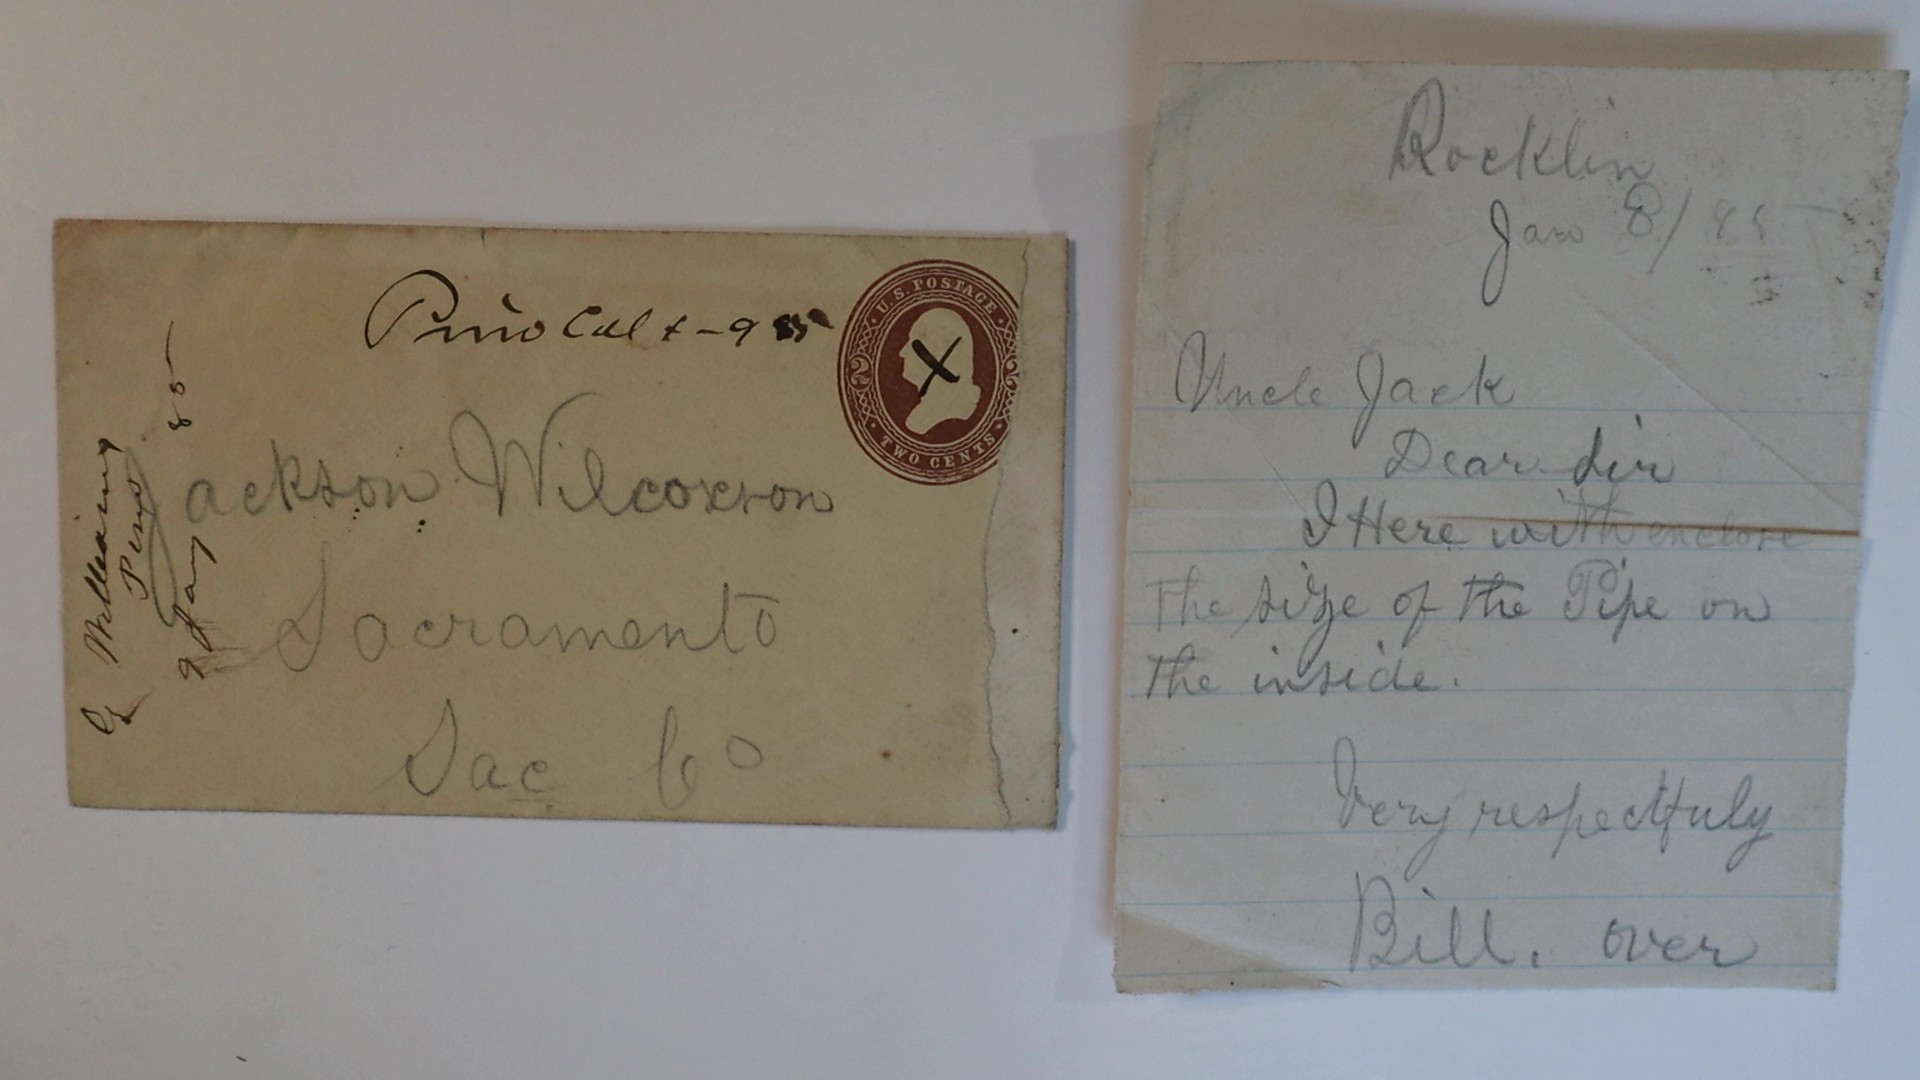 Pino Cal + - 9 85
U.S. POSTAGE
2 2
TWO CENTS
X
Jackson Wilcoxson
Sacramento
Sac Co
G Williams
Pino
9 Jany 85
Rocklin
Jan 8/85
Uncle Jack
Dear Sir
I Here with enclose
The size of the Pipe on
the inside.
Very respectfuly
Bill. over